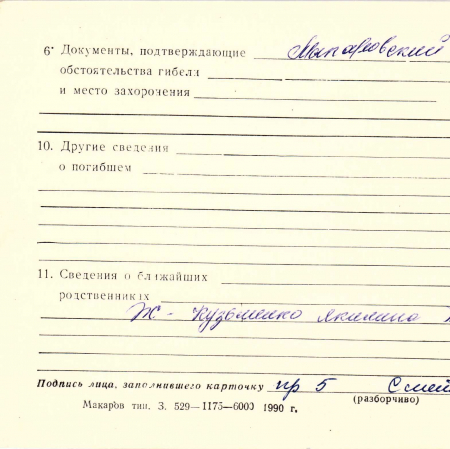 6* Документы, подтверждающие
обстоятельства гибели
и место захоронения
10. Другие сведения
о погибшем
11. Сведения о ближайших
родственниках
Ж - Кузьменко Акилина
Подпись лица, заполнившего карточку пр 5 Смей
(разборчиво)
Макаров тип. З. 529—1175—6000 1990 г.